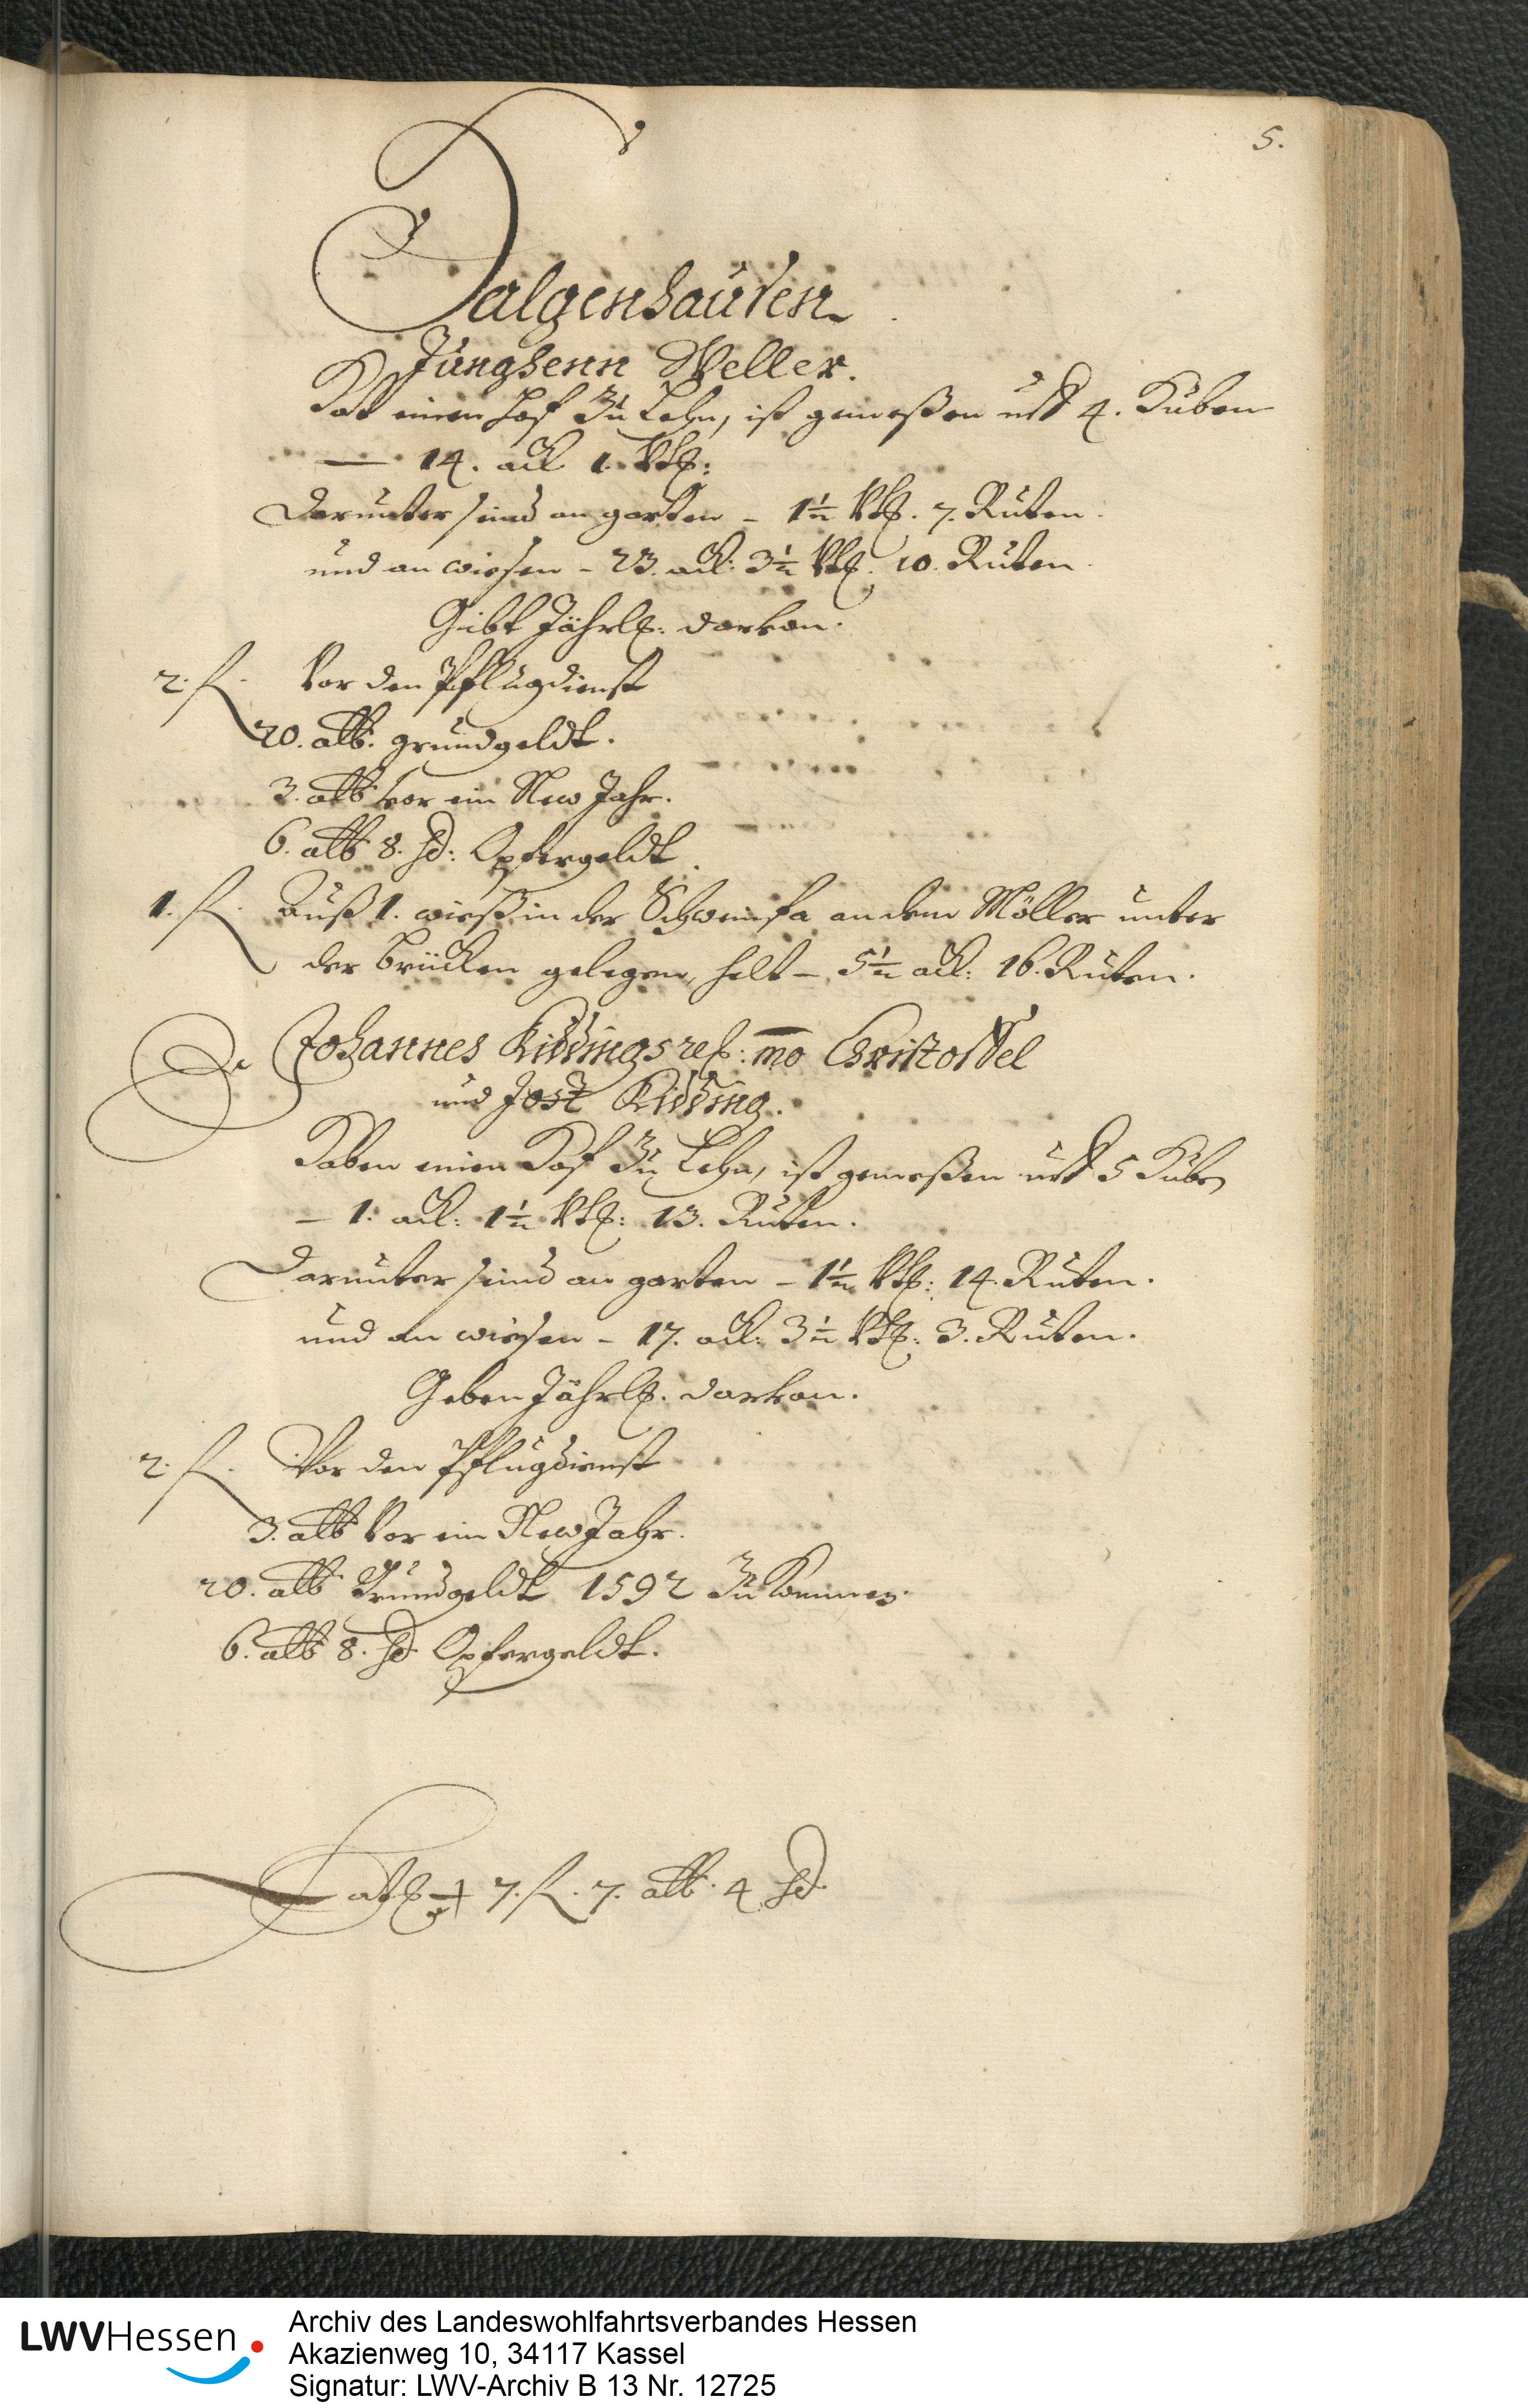 5.
Dalgenhausen
Junghenn Weller.
Hat einen Hof zu Lehn, ist gemeßen uff 4. Huben
— 14. ack 1. Vtl:
Darunter seind an garten – 1½ Vtl. 7. Ruten.
und an wiesen – 23. ack: 3½ Vtl. 10. Ruten.
Gibt Jährl: darvon.
2. fl. Vor den Pflugdienst
20. alb. grundgeldt.
3. alb vor ein New Jahr.
6. alb 8. hl: Opfergeldt.
1. fl. Auß 1. wieß in der Schweinfa an dem Möller unter
der Brücken gelegen, helt – 5½ ack: 16. Ruten.
Johannes Ridding rel: mo Christoffel
und Jost Ridding.
Haben einen Hof zu Lehn, ist gemeßen uff 5 Huben
– 1. ack: 1½ Vtl: 13. Ruten.
Darunter seind an garten – 1½ Vtl: 14. Ruten.
und an wiesen – 17. ack: 3½ Vtl: 3. Ruten.
Geben Jährl. darvon.
2. fl. Vor den Pflugdienst
3. alb Vor ein New Jahr.
20. alb Grundgeldt 1592 zu kommen.
6. alb 8. hl Opfergeldt.
Lat 7. fl. 7. alb. 4 hl.
LWVHessen
Archiv des Landeswohlfahrtsverbandes Hessen
Akazienweg 10, 34117 Kassel
Signatur: LWV-Archiv B 13 Nr. 12725